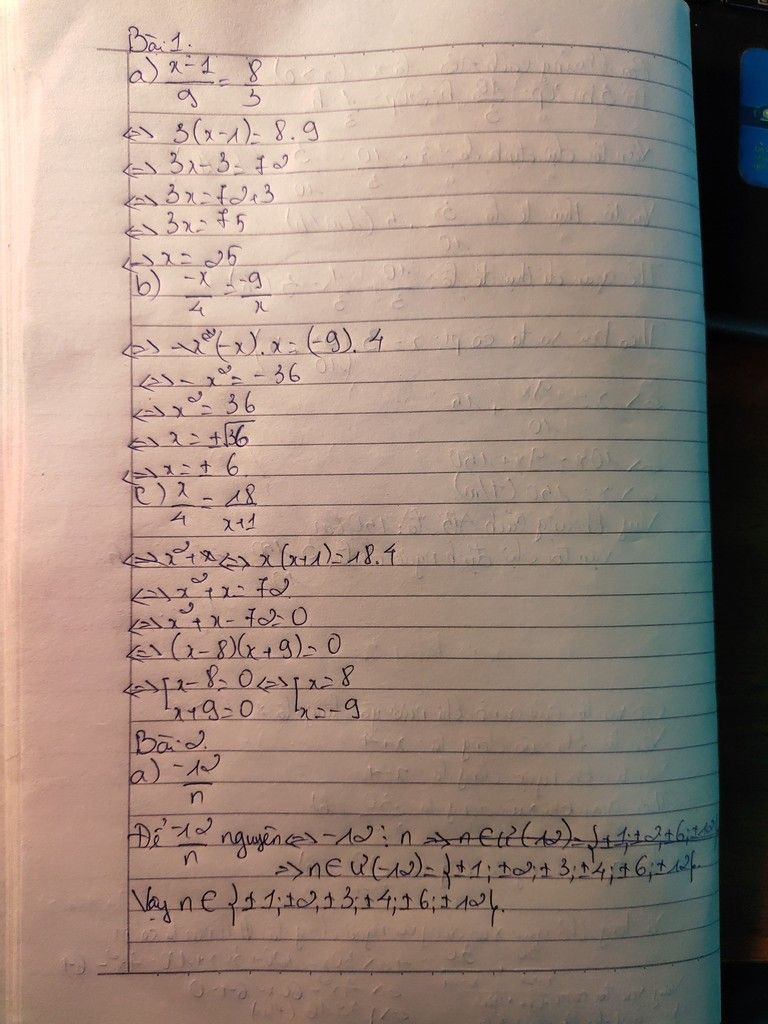 Bài 1.
a) x-1/9 = 8/3
<=> 3(x-1) = 8.9
<=> 3x-3 = 72
<=> 3x = 72+3
<=> 3x = 75
<=> x = 25
b) -x/4 = -9/x
<=> (-x).x = (-9).4
<=> -x² = -36
<=> x² = 36
<=> x = ±√36
<=> x = ±6
c) x/4 = 18/x+1
<=> x²+x <=> x(x+1) = 18.4
<=> x²+x = 72
<=> x²+x-72=0
<=> (x-8)(x+9)=0
<=> [x-8=0 <=> [x=8
x+9=0 x=-9
Bài 2.
a) -12/n
Để -12/n nguyên <=> -12 ⋮ n => n ∈ Ư(-12) = {±1; ±2; ±6; ±12
=> n ∈ Ư(-12) = {±1; ±2; ±3; ±4; ±6; ±12}.
Vậy n ∈ {±1; ±2; ±3; ±4; ±6; ±12}.